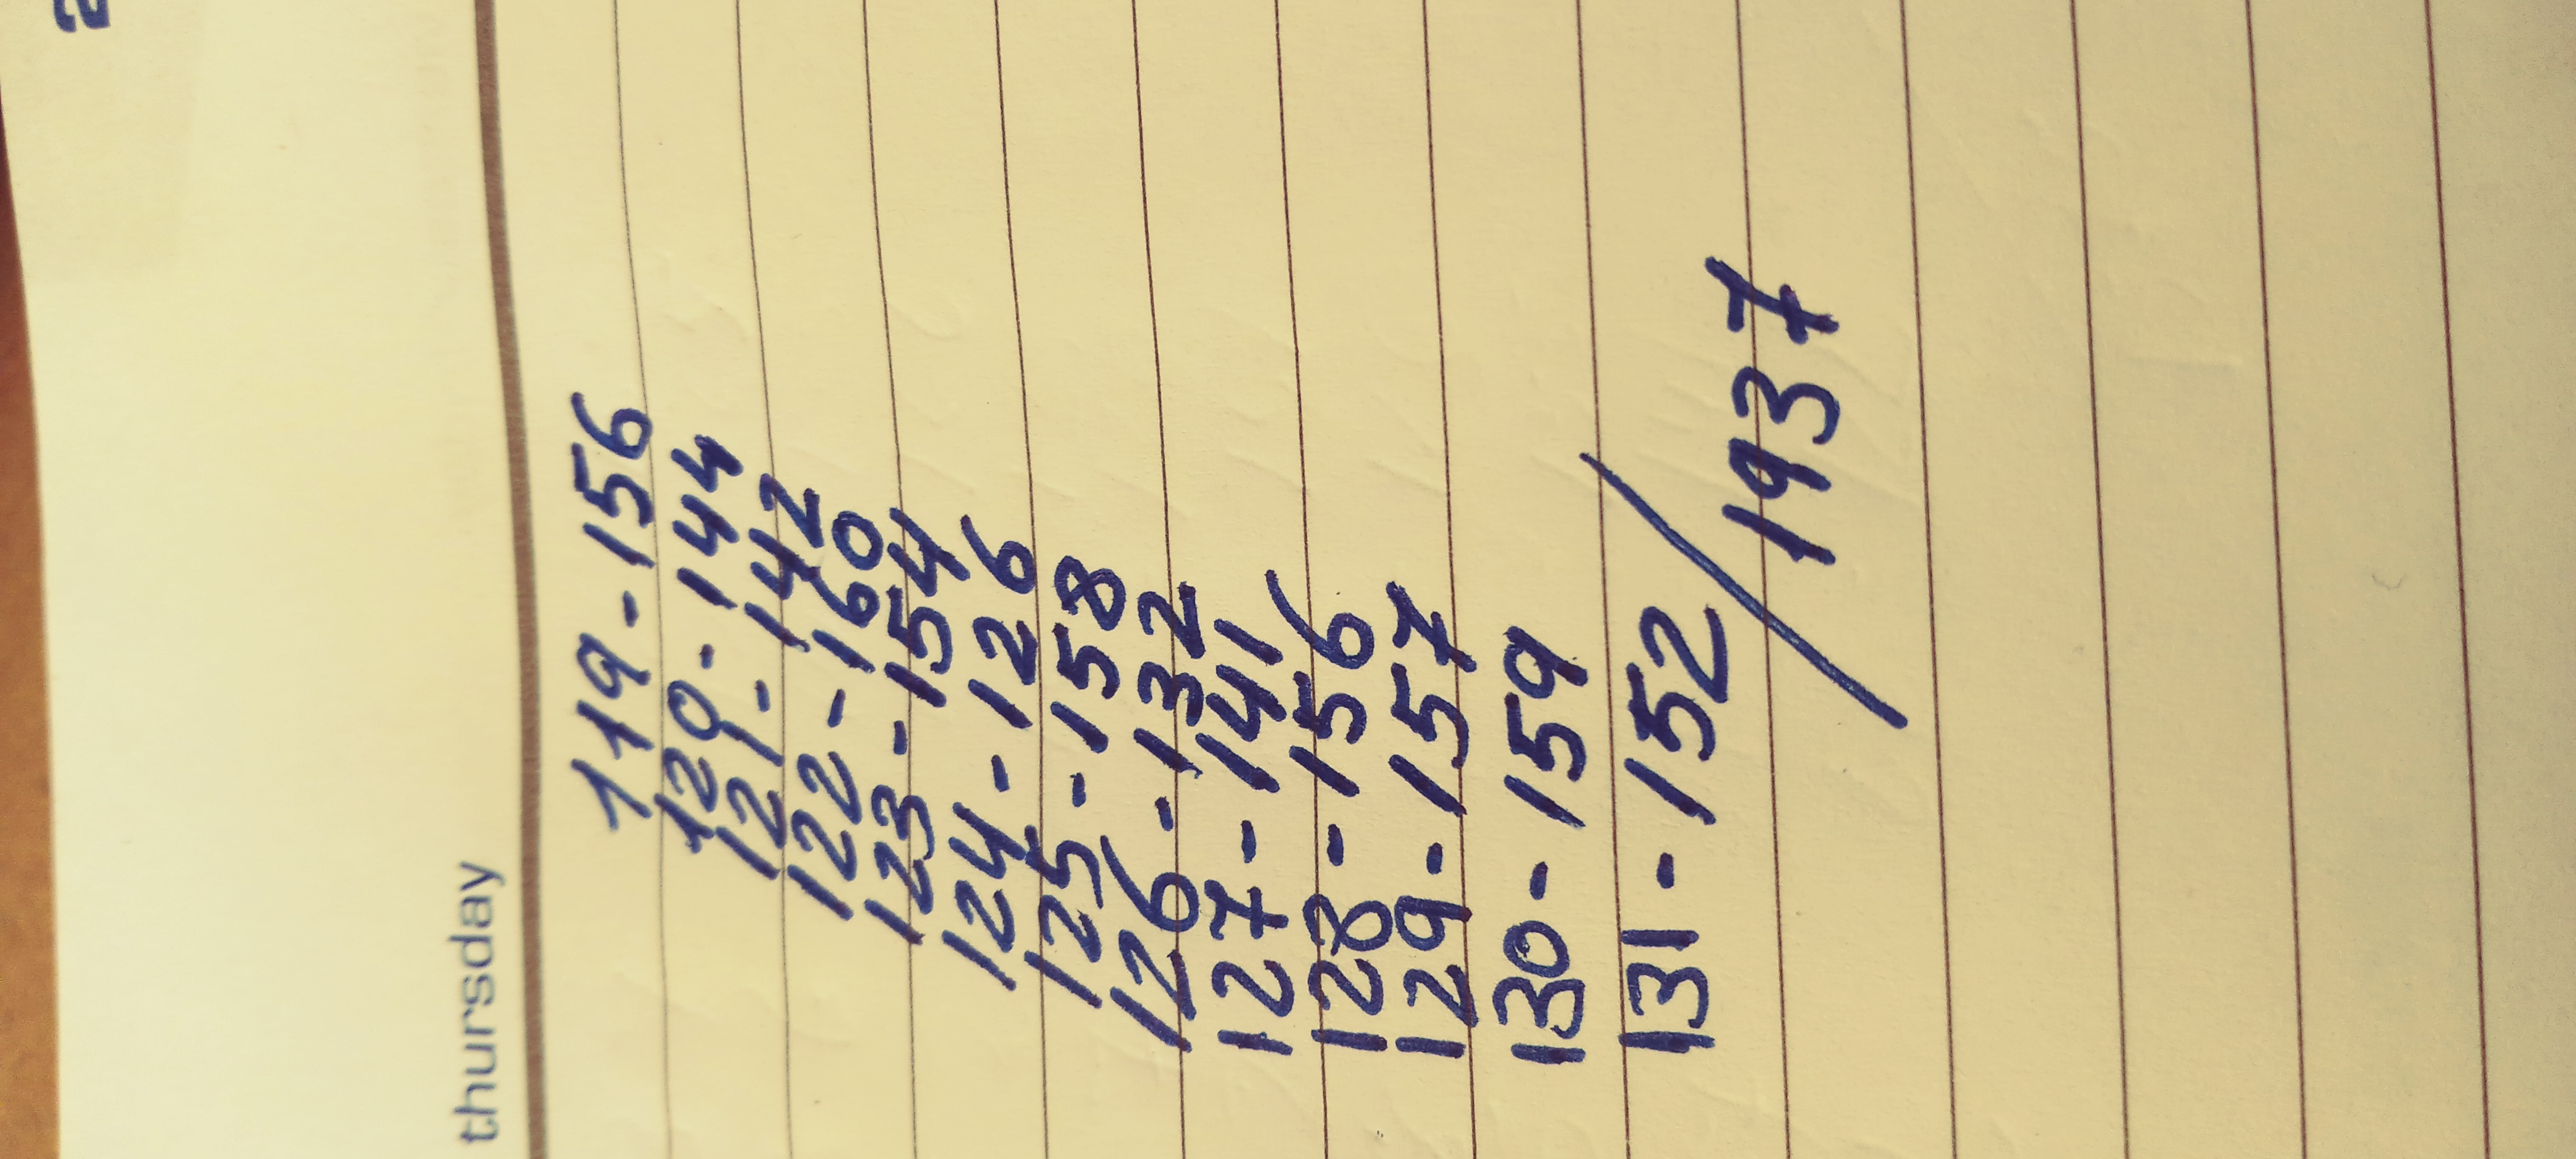 thursday
119-156
120-144
121-142
122-160
123-154
124-126
125-158
126-132
127-141
128-156
129-157
130-159
131-152/1937